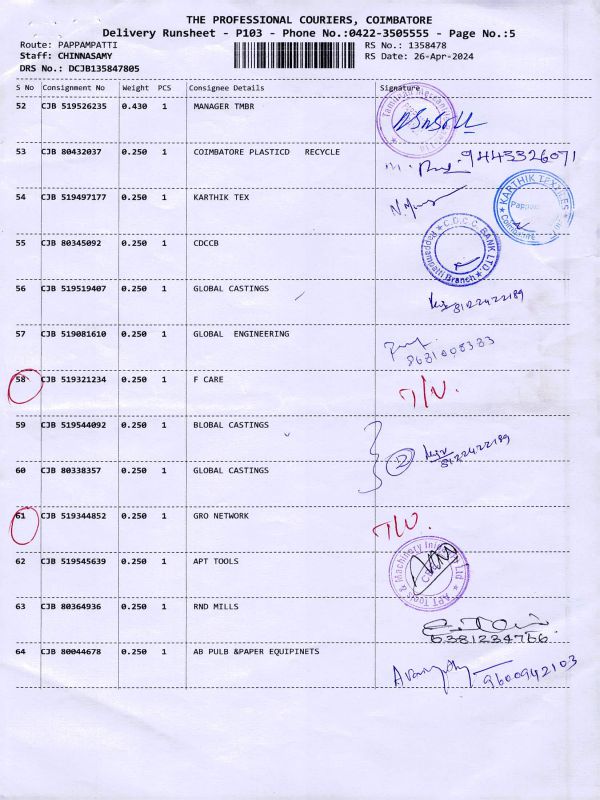 THE PROFESSIONAL COURIERS, COIMBATORE
Delivery Runsheet - P103 - Phone No.:0422-3505555 - Page No.:5
Route: PAPPAMPATTI RS No.: 1358478
Staff: CHINNASAMY RS Date: 26-Apr-2024
DRS No.: DCJB135847805
S No Consignment No Weight PCS Consignee Details Signature
52 CJB 519526235 0.430 1 MANAGER TMBR
53 CJB 80432037 0.250 1 COIMBATORE PLASTICD RECYCLE 9443326071
54 CJB 519497177 0.250 1 KARTHIK TEX
KARTHIK TEXTILES
Coimbatore
55 CJB 80345092 0.250 1 CDCCB
C.D.C.C. BANK LTD.
Pappampatti Branch
56 CJB 519519407 0.250 1 GLOBAL CASTINGS 8122422189
57 CJB 519081610 0.250 1 GLOBAL ENGINEERING
9631008383
58 CJB 519321234 0.250 1 F CARE
59 CJB 519544092 0.250 1 BLOBAL CASTINGS
2 8122422189
60 CJB 80338357 0.250 1 GLOBAL CASTINGS
61 CJB 519344852 0.250 1 GRO NETWORK
62 CJB 519545639 0.250 1 APT TOOLS
APT Tools & Machinery
63 CJB 80364936 0.250 1 RND MILLS
6381234766
64 CJB 80044678 0.250 1 AB PULB &PAPER EQUIPINETS
9600942103